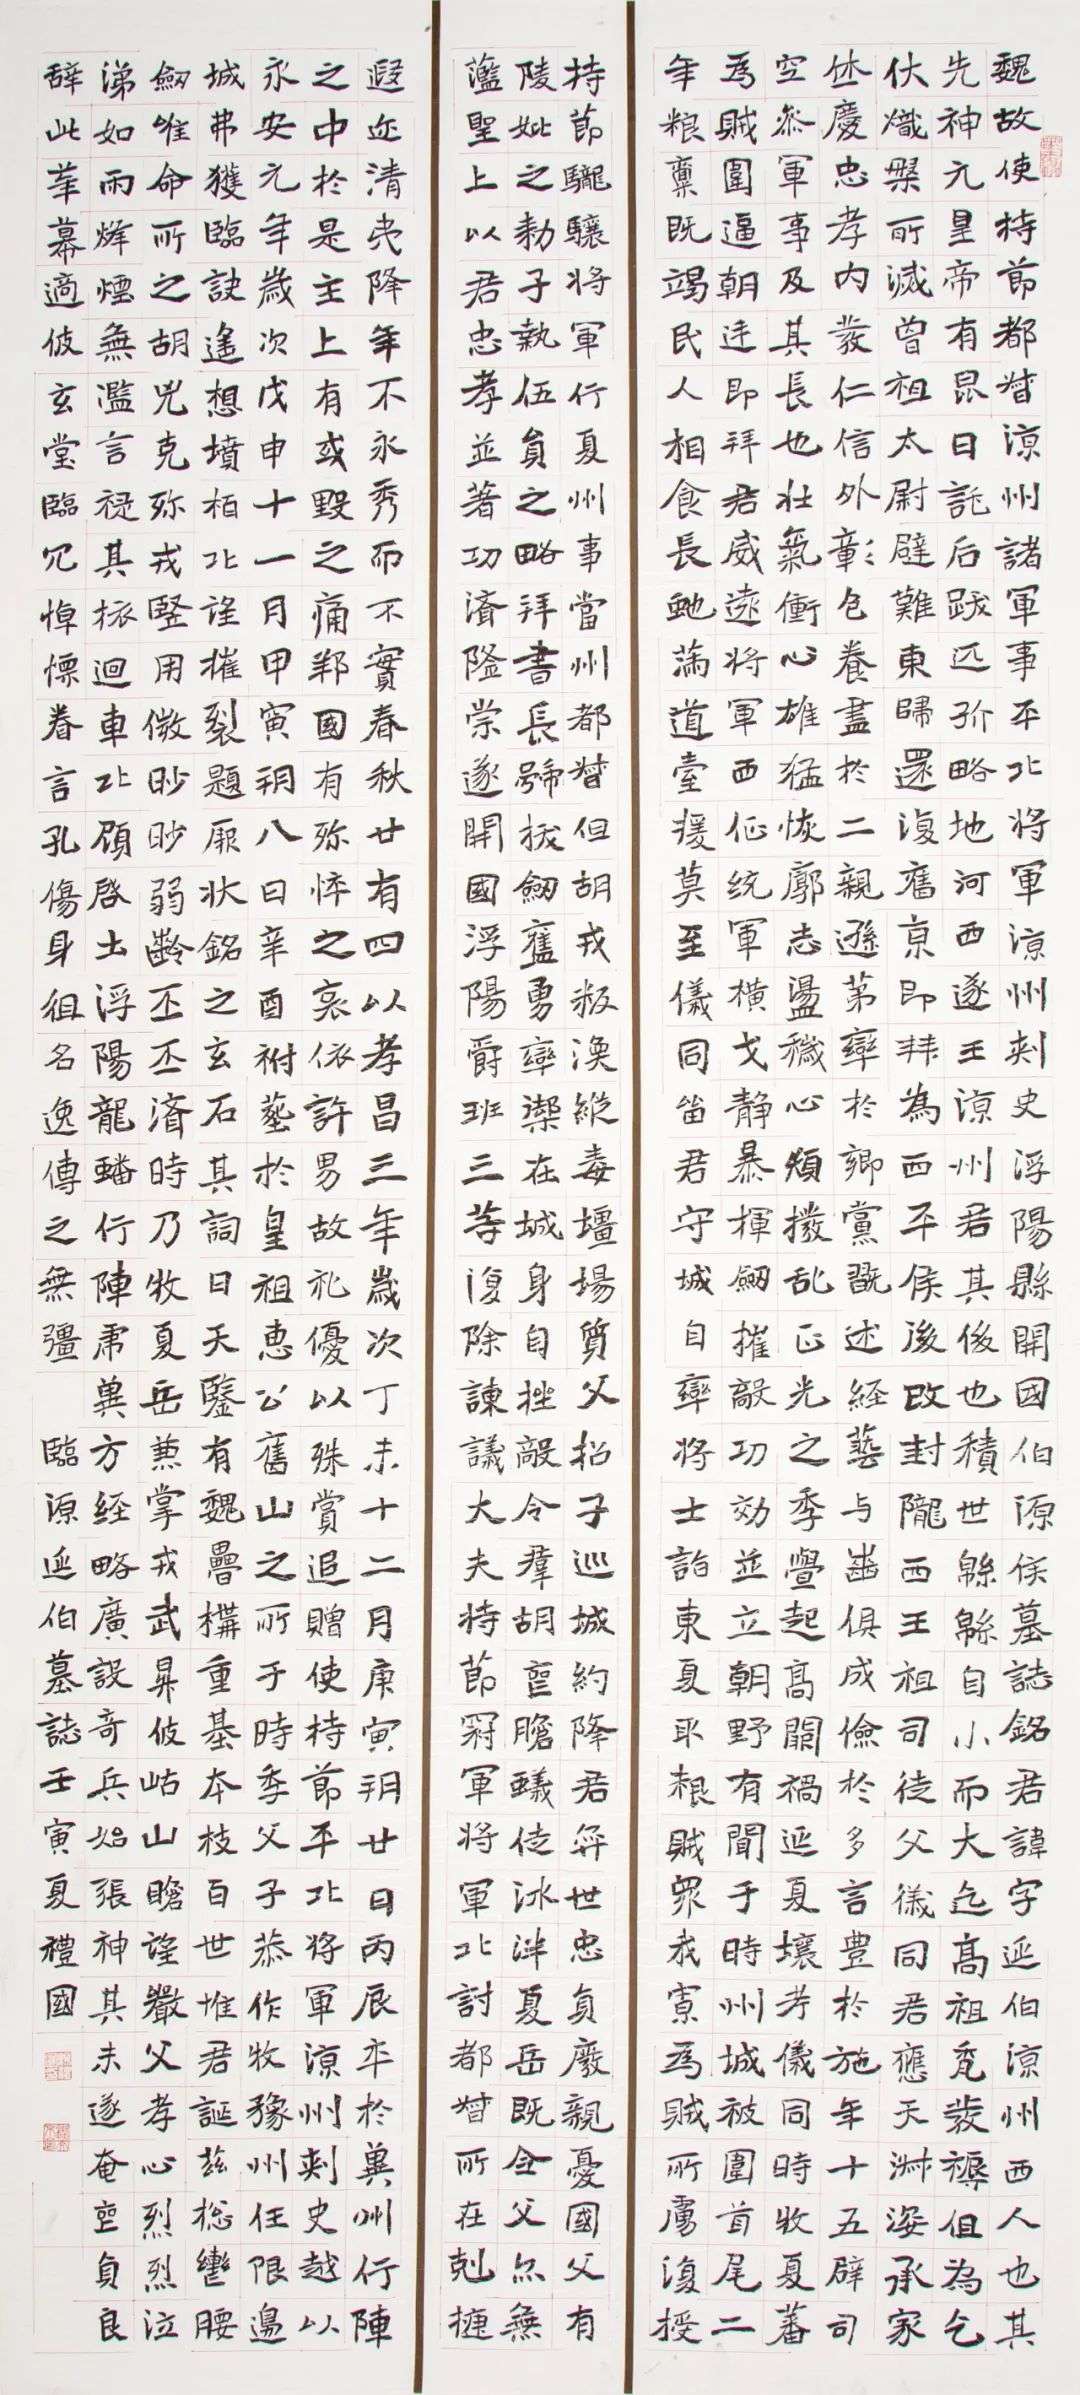 魏故使持節都督涼州諸軍事平北將軍涼州刺史浮陽縣開國伯源侯墓誌銘君諱字延伯涼州西人也其
先神元皇帝有昆曰託后跋匹孤略地河西遂王涼州君其後也積世緜緜自小而大迄高祖禿髮褥但為乞
伏熾槃所滅曾祖太尉避難東歸還復舊京即拜為西平侯後改封隴西王祖司徒父儀同君應天淋姿承家
世慶忠孝內發仁信外彰色養盡於二親遜第率於鄉黨既述経藝与齒俱成儉於多言豊於施年十五辟司
空參軍事及其長也壯氣衝心雄猛恢廓志盪穢心頻撥乱正光之季舋起高闕禍延夏壤考儀同時牧夏蕃
為賊圍逼朝廷即拜君威遠將軍西征統軍橫戈靜暴揮劒摧敵功効並立朝野有聞于時州城被圍首尾二
年粮稟既竭民人相食長虵滿道臺援莫至儀同留君守城自率將士詣東夏取粮賊眾我寡為賊所虜復授
持節龍驤將軍行夏州事當州都督但胡戎叛渙縱毒壃場質父招子巡城約降君弈世忠貞廢親憂國父有
陵妣之勑子執伍員之略拜書長號拔劒舊勇率禦在城身自挫敵令羣胡喪膽蟻徒冰泮夏岳既全父亦無
灆聖上以君忠孝並著功濟隘崇遂開國浮陽爵班三等復除諫議大夫持節冠軍將軍北討都督所在剋捷
遐迩清夷降年不永秀而不實春秋廿有四以孝昌三年歲次丁未十二月庚寅朔廿日丙辰卒於冀州行陣
之中於是主上有或毀之痛鄴國有殄悴之哀依許男故礼優以殊賞追贈使持節平北將軍涼州刺史越以
永安元年歲次戊申十一月甲寅朔八日辛酉祔葬於皇祖惠公舊山之所于時季父子恭作牧豫州任限邊
城弗獲臨訣遙想墳柏北望摧裂題厥狀銘之玄石其詞曰天鑒有魏疊構重基本枝百世惟君誕茲捴鬯腰
劒唯命所之胡兇克殄戎竪用儆眇眇弱齡丕丕濟時乃牧夏岳兼掌戎武昇彼岵山瞻望嚴父孝心烈烈泣
涕如雨烽煙無濫言褆其迴車北顧啓土浮陽龍蟠行陣冀方経略廣設奇兵始張神其未遂奄喪貞良
辞此華幕適彼玄堂臨穴悼慄眷言孔傷身徂名逸傳之無彊 臨源延伯墓誌壬寅夏禮國